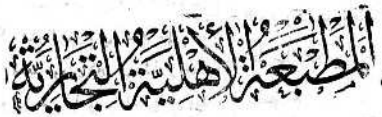 المَطْبَعَةُ الأَهْلِيَّةُ التِّجَارِيَّةُ